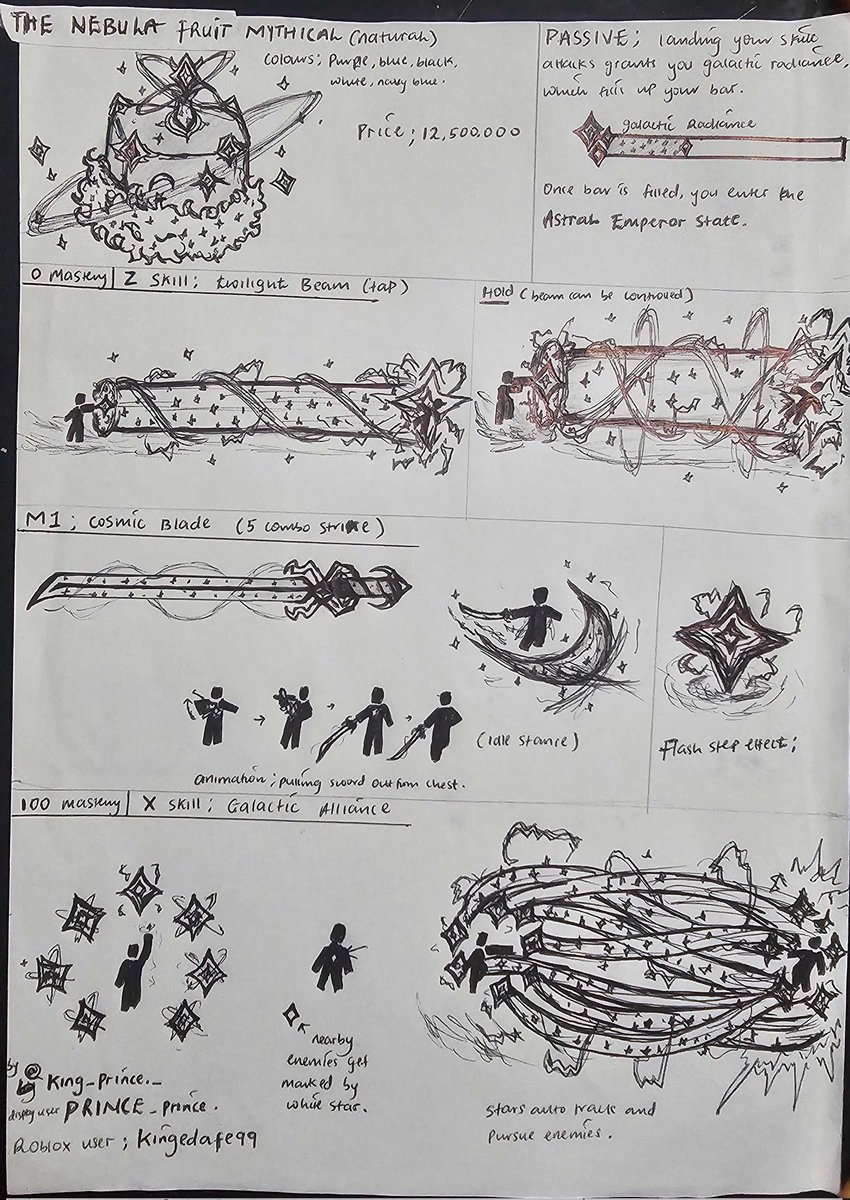 THE NEBULA FRUIT MYTHICAL (natural)
colours; Purple, blue, black,
white, navy blue.
Price; 12,500,000
PASSIVE; landing your skill
attacks grants you galactic radiance,
which fills up your bar.
galactic Radiance
Once bar is filled, you enter the
Astral Emperor State.
0 Mastery | Z Skill; twilight Beam (tap)
HOLD (beam can be controlled)
M1; Cosmic Blade (5 combo strike)
(Idle stance)
flash step effect;
animation; pulling sword out from chest.
100 mastery | X skill; Galactic Alliance
nearby
enemies get
marked by
white star.
Stars auto track and
pursue enemies.
by @
by King_Prince._
display user PRINCE_Prince.
Roblox user; Kingedafe99